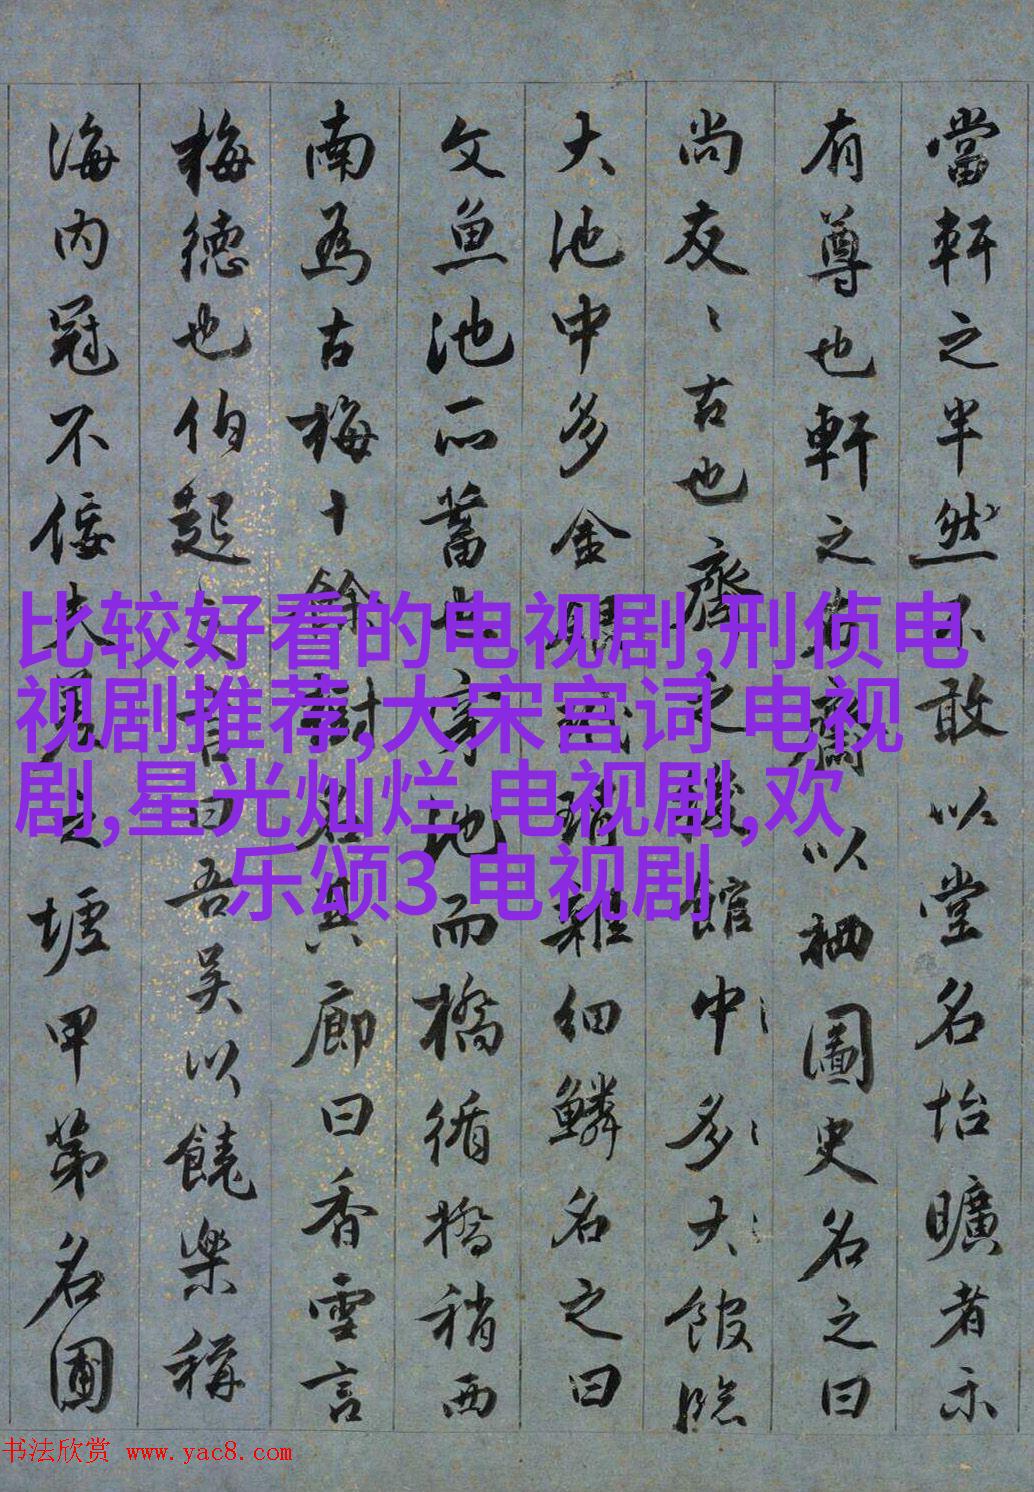 當軒之半然不敢以堂名怡曠者示
有尊也軒之
以栖圖史名之曰
尚友〻古也齋之
館中〻多〻大〻館臨
大池中多金
雜細鱗名之曰
文魚池所蓄
地而橋循橋稍西
南為古梅十餘樹名其廊曰香雪言
梅德也伯起
曰吾吳以饒樂稱
海內冠不佞
塘甲第名圃
比较好看的电视剧,刑侦电
视剧推荐,大宋宫词 电视
剧,星光灿烂 电视剧,欢
乐颂3 电视剧
书法欣赏 www.yac8.com